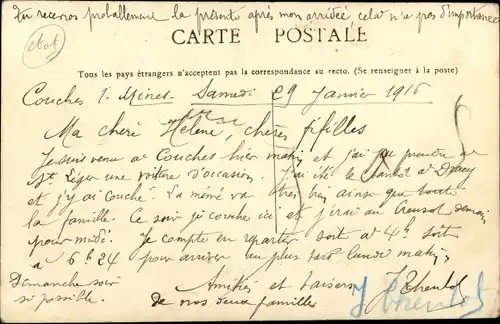 Tu recevras probablement la présente après mon arrivée, cela n'a pas d'importance
CARTE POSTALE
Tous les pays étrangers n'acceptent pas la correspondance au recto. (Se renseigner à la poste)
Couches l. Mines Samedi 29 Janvier 1916
Ma chère Hélène, chères fifilles
Je suis venu à Couches hier matin et j'ai pu prendre de
St Léger une voiture d'occasion. J'ai été le à Dracy
et j'y ai couché. La mémé va très bien ainsi que toute
la famille. Ce soir je couche ici et j'irai au Creusot demain
pour midi. Je compte en repartir soit à 4h soit
à 6h24 pour arriver au plus tard lundi matin
Dimanche soir
si possible.
Amitiés et baisers
de nos deux familles